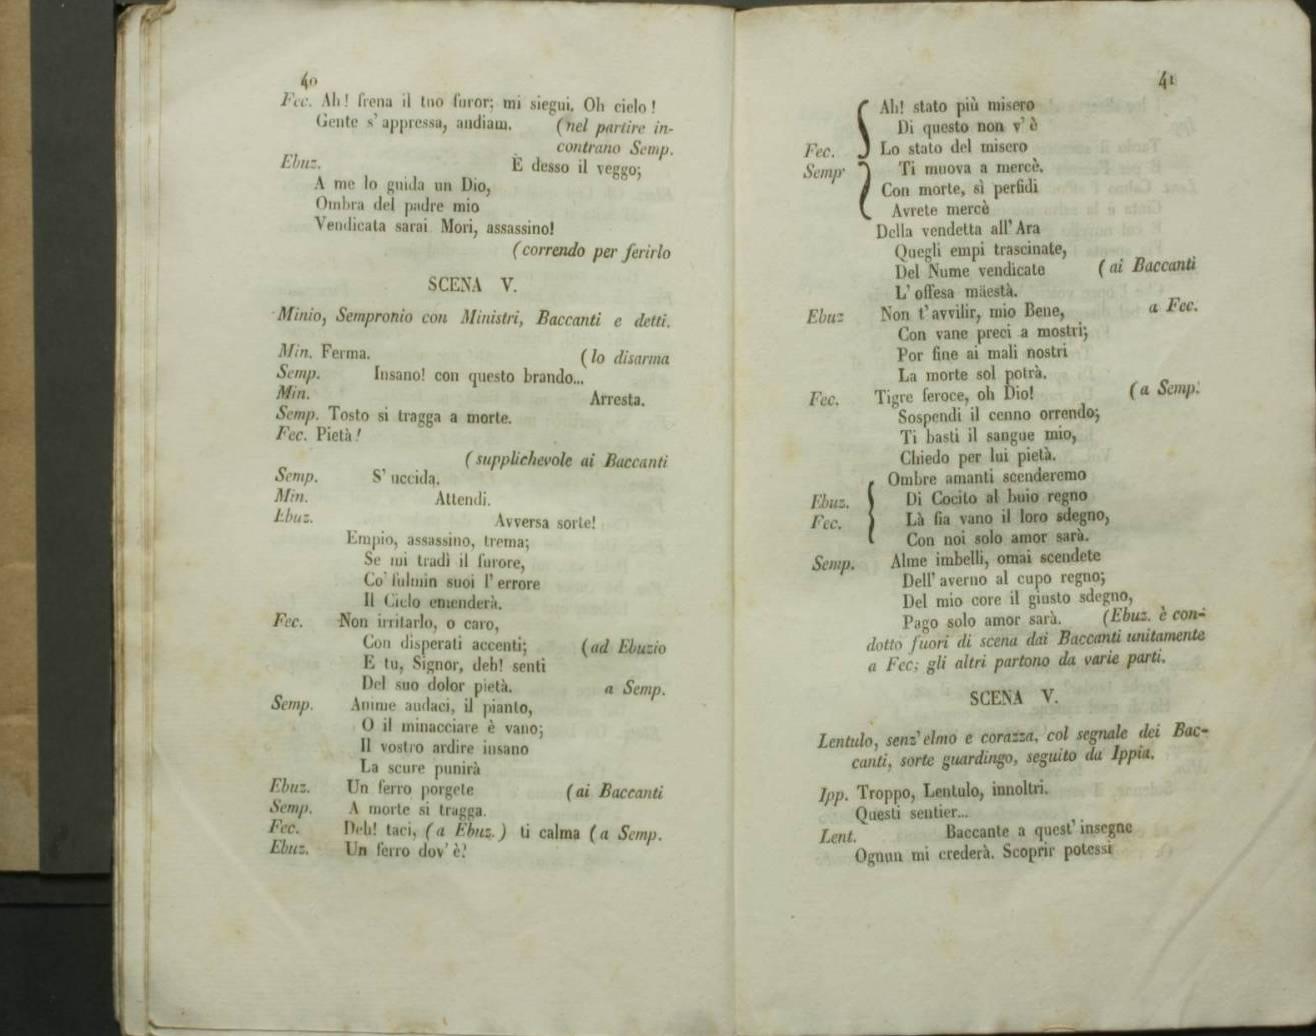 40
Fec. Ah! frena il tuo furor; mi siegui. Oh cielo!
Gente s'appressa, andiam. (nel partire in-
contrano Semp.
Ebuz. È desso il veggo;
A me lo guida un Dio,
Ombra del padre mio
Vendicata sarai Mori, assassino!
(correndo per ferirlo
SCENA V.
Minio, Sempronio con Ministri, Baccanti e detti.
Min. Ferma. (lo disarma
Semp. Insano! con questo brando...
Min. Arresta.
Semp. Tosto si tragga a morte.
Fec. Pietà!
(supplichevole ai Baccanti
Semp. S'uccida.
Min. Attendi.
Ebuz. Avversa sorte!
Empio, assassino, trema;
Se mi tradì il furore,
Co' fulmin suoi l'errore
Il Cielo emenderà.
Fec. Non irritarlo, o caro,
Con disperati accenti; (ad Ebuzio
E tu, Signor, deh! senti
Del suo dolor pietà. a Semp.
Semp. Anime audaci, il pianto,
O il minacciare è vano;
Il vostro ardire insano
La scure punirà
Ebuz. Un ferro porgete (ai Baccanti
Semp. A morte si tragga.
Fec. Deh! taci, (a Ebuz.) ti calma (a Semp.
Ebuz. Un ferro dov'è?
41
Ah! stato più misero
Di questo non v'è
Fec. Lo stato del misero
Semp Ti muova a mercè.
Con morte, sì perfidi
Avrete mercè
Della vendetta all'Ara
Quegli empi trascinate,
Del Nume vendicate (ai Baccanti
L'offesa mäestà.
Ebuz Non t'avvilir, mio Bene, a Fec.
Con vane preci a mostri;
Por fine ai mali nostri
La morte sol potrà.
Fec. Tigre feroce, oh Dio! (a Semp.
Sospendi il cenno orrendo;
Ti basti il sangue mio,
Chiedo per lui pietà.
Ombre amanti scenderemo
Ebuz. Di Cocito al buio regno
Fec. Là fia vano il loro sdegno,
Con noi solo amor sarà.
Semp. Alme imbelli, omai scendete
Dell'averno al cupo regno;
Del mio core il giusto sdegno,
Pago solo amor sarà. (Ebuz. è con-
dotto fuori di scena dai Baccanti unitamente
a Fec; gli altri partono da varie parti.
SCENA V.
Lentulo, senz'elmo e corazza, col segnale dei Bac-
canti, sorte guardingo, seguito da Ippia.
Ipp. Troppo, Lentulo, innoltri.
Questi sentier...
Lent. Baccante a quest'insegne
Ognun mi crederà. Scoprir potessi